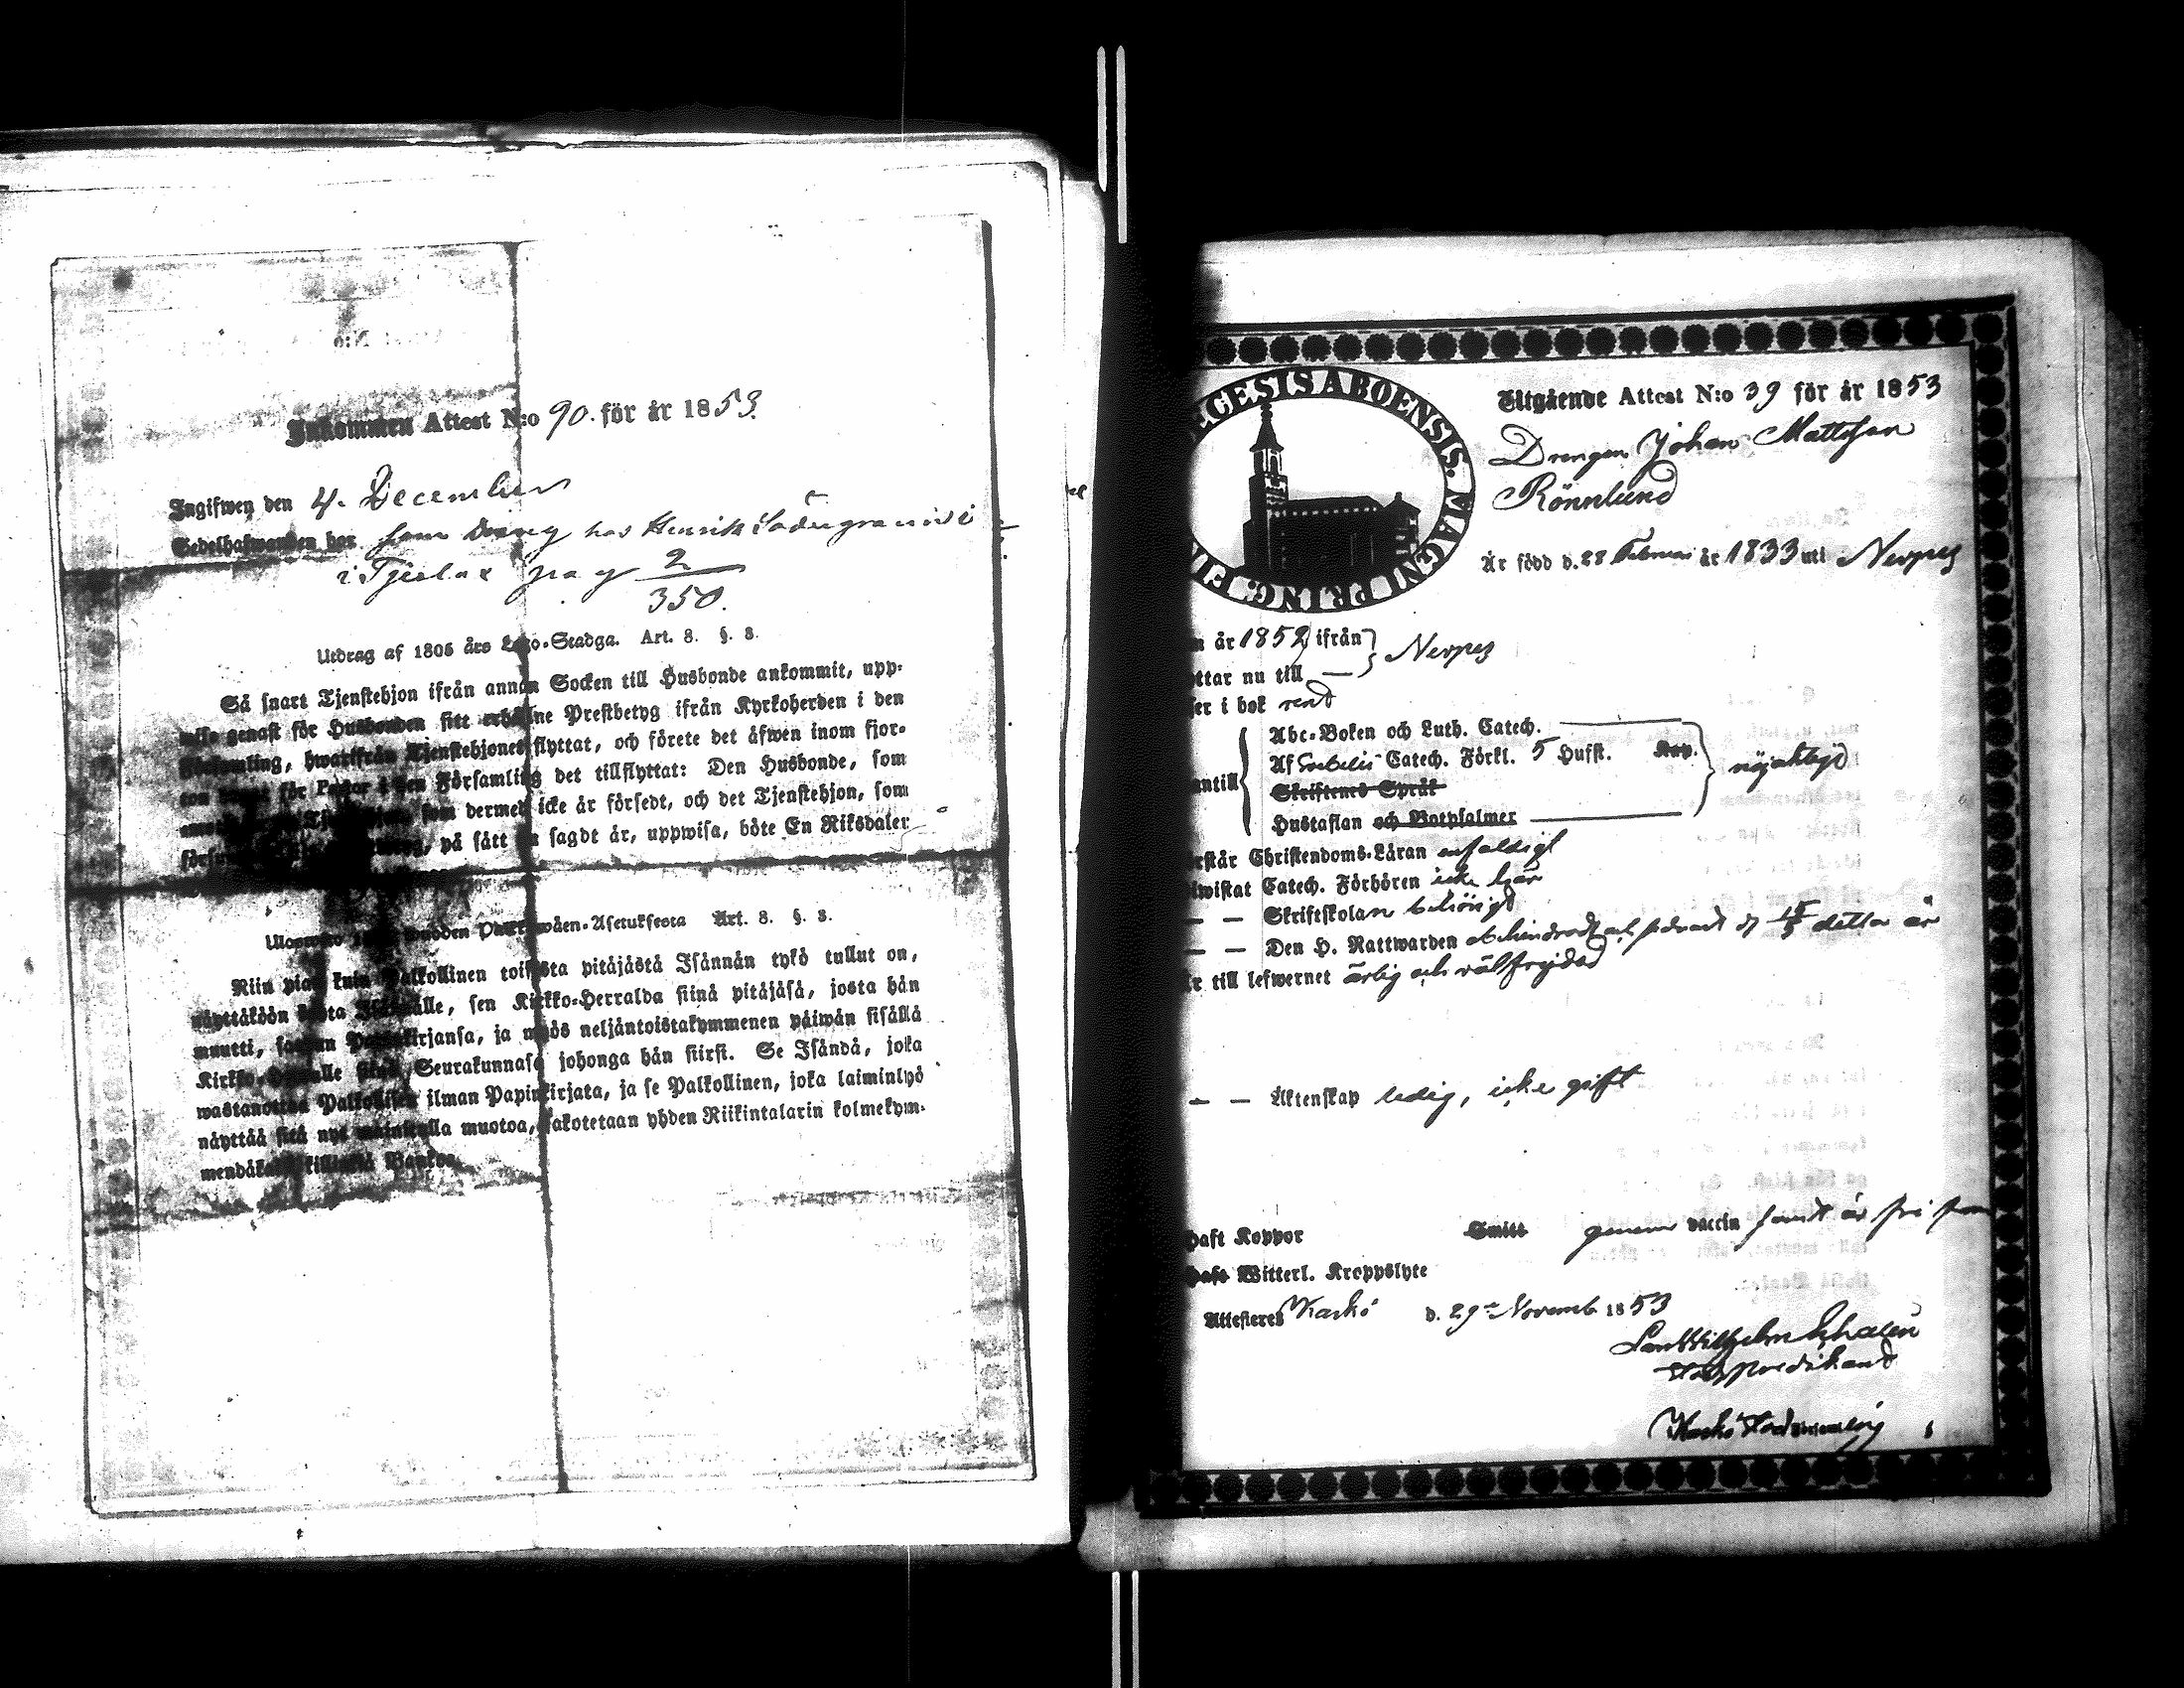 Inkommen Attest N:o 90. för år 1853.
Ingifwen den 4. December
Sedelhafwanden har som dräng hos Henrik Södergrannas i
i Tjerlax pag 2
350.
Utdrag af 1805 års Lego-Stadga. Art. 8. §. 8.
Så snart Tjenstehjon ifrån annan Socken till Husbonde ankommit, upp-
wise genast för Husbonden sitt erhållne Prestbetyg ifrån Kyrkoherden i den
Församling, hwarifrån Tjenstehjonet flyttat, och förete det äfwen inom fjor-
ton för Pastor i den Församling det tillflyttat: Den Husbonde, som
som dermed icke är försedt, och det Tjenstehjon, som
på sätt sagdt är, uppwisa, böte En Riksdaler
Palkkawäen-Asetuksesta Art. 8. §. 8.
Niin pian kuin Palkollinen toisesta pitäjästä Isännän tykö tullut on,
näyttäköön Isännälle, sen Kirkko-Herralda siinä pitäjäsä, josta hän
muutti, saadun Papinkirjansa, ja myös neljäntoistakymmenen päiwän sisällä
Kirkko-Herralle Seurakunnasa johonga hän siirsi. Se Isändä, joka
wastanottaa Palkollisen ilman Papinkirjata, ja se Palkollinen, joka laiminlyö
näyttää sitä nyt mainitulla muotoa, sakotetaan yhden Riikintalarin kolmekym-
mendä killingiä Bankoa.
DIOECESIS ABOENSIS. MAGNI PRINC. FINL.
Utgående Attest N:o 39 för år 1853
Drengen Johan Mattsson
Rönnlund
Är född d. 28 Februari år 1833 uti Nerpes
n år 1852 ifrån } Nerpes
ottar nu till —
ser i bok rent
Abc-Boken och Luth. Catech.
Af Svebelii Catech. Förkl. 5 Hufst. Kap.
antill nöjaktigt
Skriftenes Språk
Hustaflan och Botpsalmer
rstår Christendoms-Läran enfaldigt
iwistat Catech. Förhören icke här
— — Skriftskolan behörigt
— — Den H. Nattwarden obehindradt och sednast d 15/5 detta år
r till lefwernet ärlig och välfrejdad
— — Äktenskap ledig, icke gift
haft Koppor Smitt genom vaccin samt är fri från
haft Witterl. Kroppslyte
Attesteres Kaskö d. 29de Novemb. 1853
Vilhelm
predikand
Kaskö Stadsförsamling